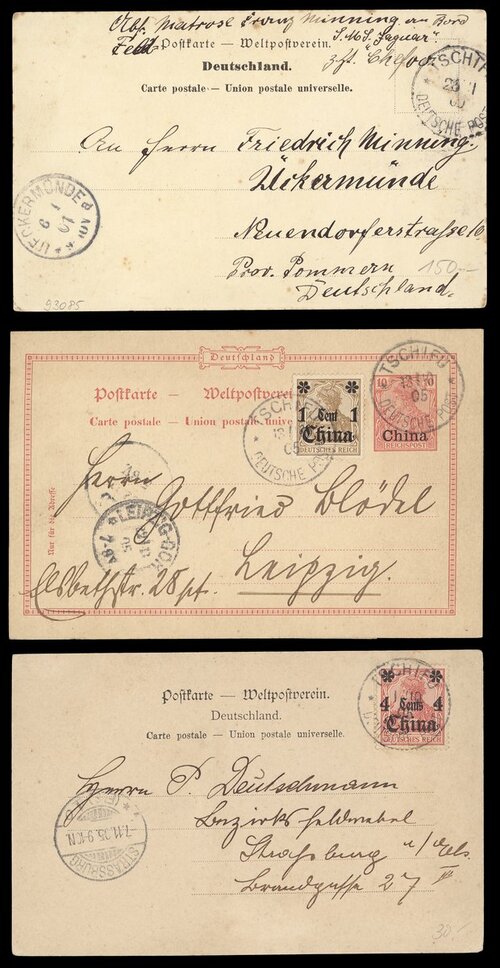 Abs. Matrose Franz Minning an Bord
S.M.S. "Jaguar"
Feld Postkarte — Weltpostverein.
z. Zt. Chefoo
Deutschland.
Carte postale — Union postale universelle.
TSCHIFU
DEUTSCHE POST
An Herrn Friedrich Minning.
Ückermünde
Neuendorferstrasse 10
Prov. Pommern
Deutschland.
UECKERMÜNDE
150.–
93085
Deutschland
Postkarte — Weltpostverein
Carte postale — Union postale unive
Nur für die Adresse.
TSCHIFU
DEUTSCHE POST
05
1 Cent 1
China
DEUTSCHES REICH
TSCHIFU
05
DEUTSCHE POST
10 10
China
REICHSPOST
Herrn
Gottfried Blödel
LEIPZIG-GOH
Leipzig.
Elsbethstr. 28 pt.
Postkarte — Weltpostverein.
Deutschland.
Carte postale — Union postale universelle.
TSCHIFU
4 Cents 4
China
DEUTSCHES REICH
Herrn P. Deutschmann
Bezirksfeldwebel
Strassburg i/Els.
Brandgasse 27
STRASSBURG
7.11.05.9-10.N.
30.-